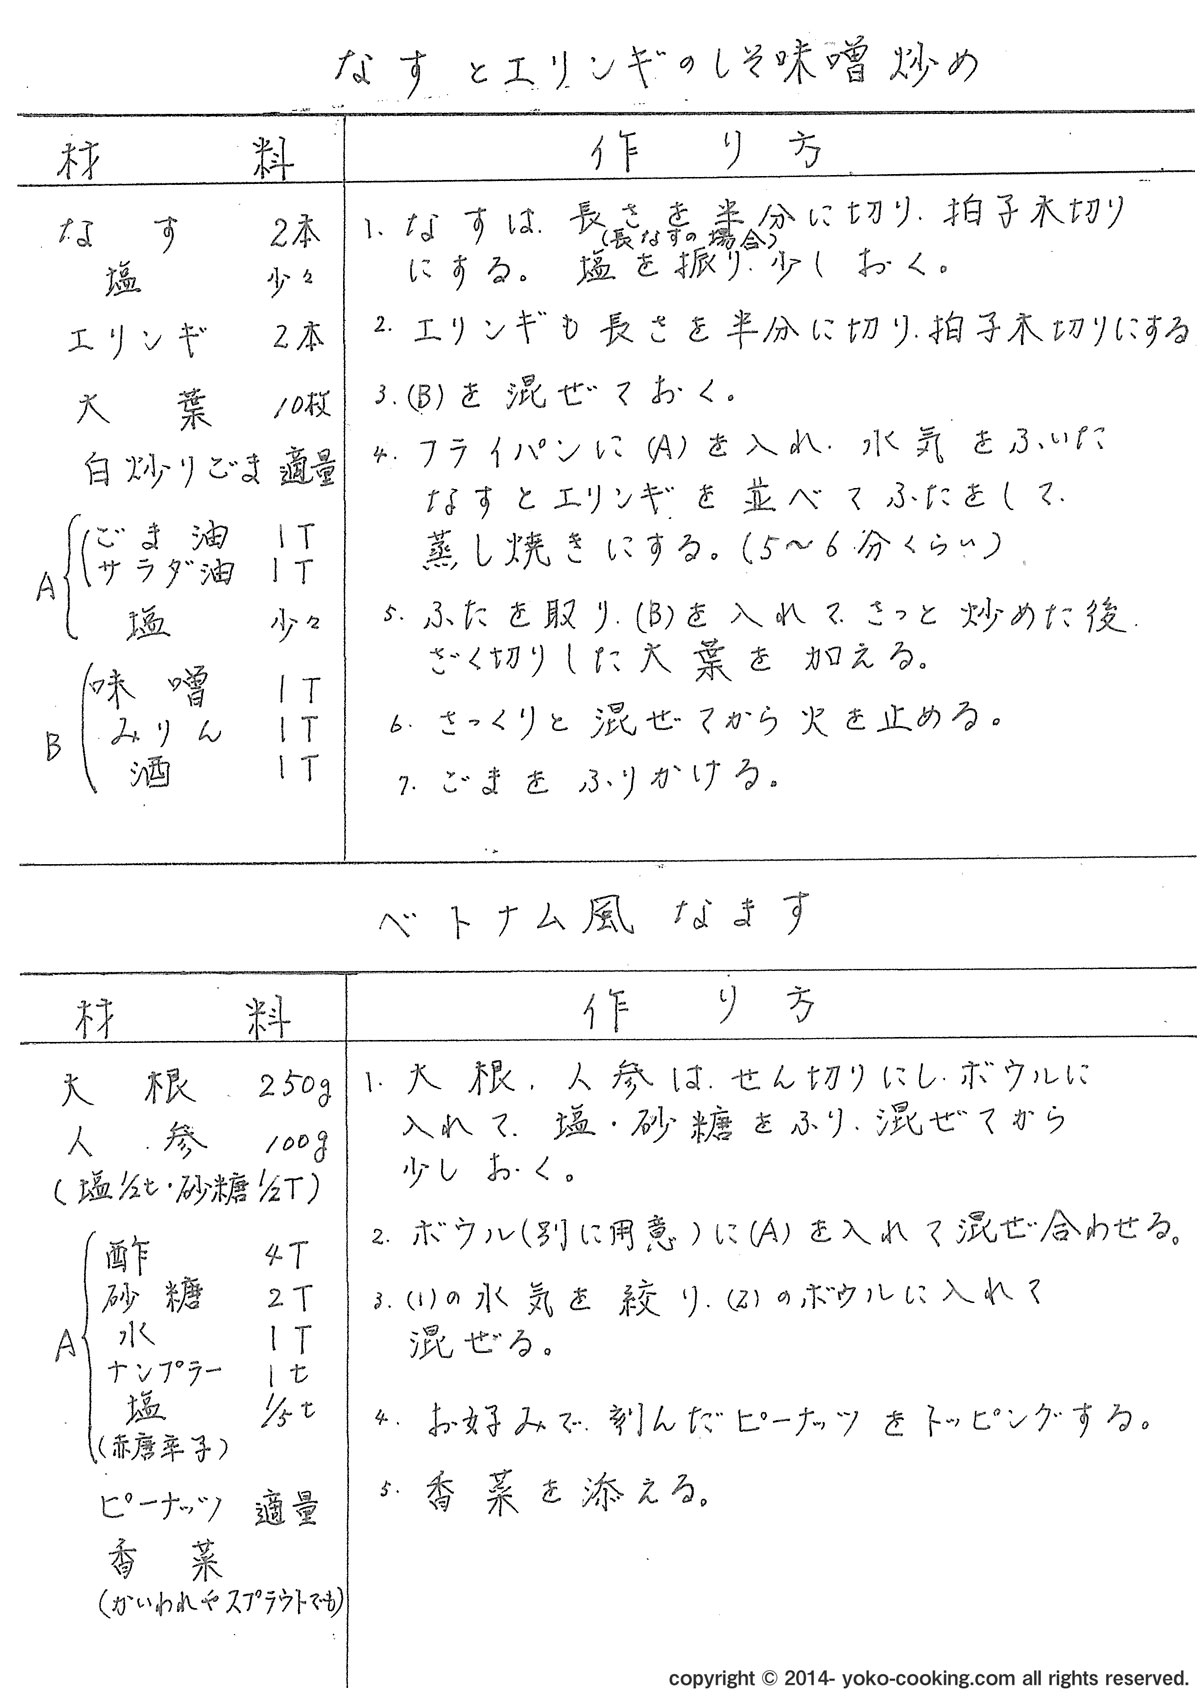 なすとエリンギのしそ味噌炒め
材料
作り方
なす 2本
塩 少々
エリンギ 2本
大葉 10枚
白炒りごま 適量
A
ごま油 1T
サラダ油 1T
塩 少々
B
味噌 1T
みりん 1T
酒 1T
1. なすは、長さを半分に切り、拍子木切り
(長なすの場合)
にする。塩を振り、少しおく。
2. エリンギも長さを半分に切り、拍子木切りにする
3. (B)を混ぜておく。
4. フライパンに(A)を入れ、水気をふいた
なすとエリンギを並べてふたをして、
蒸し焼きにする。(5〜6分くらい)
5. ふたを取り、(B)を入れて、さっと炒めた後、
ざく切りした大葉を加える。
6. さっくりと混ぜてから火を止める。
7. ごまをふりかける。
ベトナム風なます
材料
作り方
大根 250g
人参 100g
(塩1/2t・砂糖1/2T)
A
酢 4T
砂糖 2T
水 1T
ナンプラー 1t
塩 1/5t
(赤唐辛子)
ピーナッツ 適量
香菜
(かいわれやスプラウトでも)
1. 大根、人参は、せん切りにし、ボウルに
入れて、塩・砂糖をふり、混ぜてから
少しおく。
2. ボウル(別に用意)に(A)を入れて混ぜ合わせる。
3. (1)の水気を絞り、(2)のボウルに入れて
混ぜる。
4. お好みで、刻んだピーナッツをトッピングする。
5. 香菜を添える。
copyright © 2014- yoko-cooking.com all rights reserved.